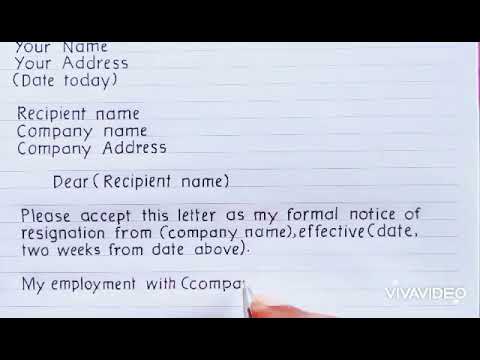 Your Name
Your Address
(Date today)
Recipient name
Company name
Company Address
Dear (Recipient name)
Please accept this letter as my formal notice of
resignation from (company name), effective (date,
two weeks from date above).
My employment with (compa
VIVAVIDEO